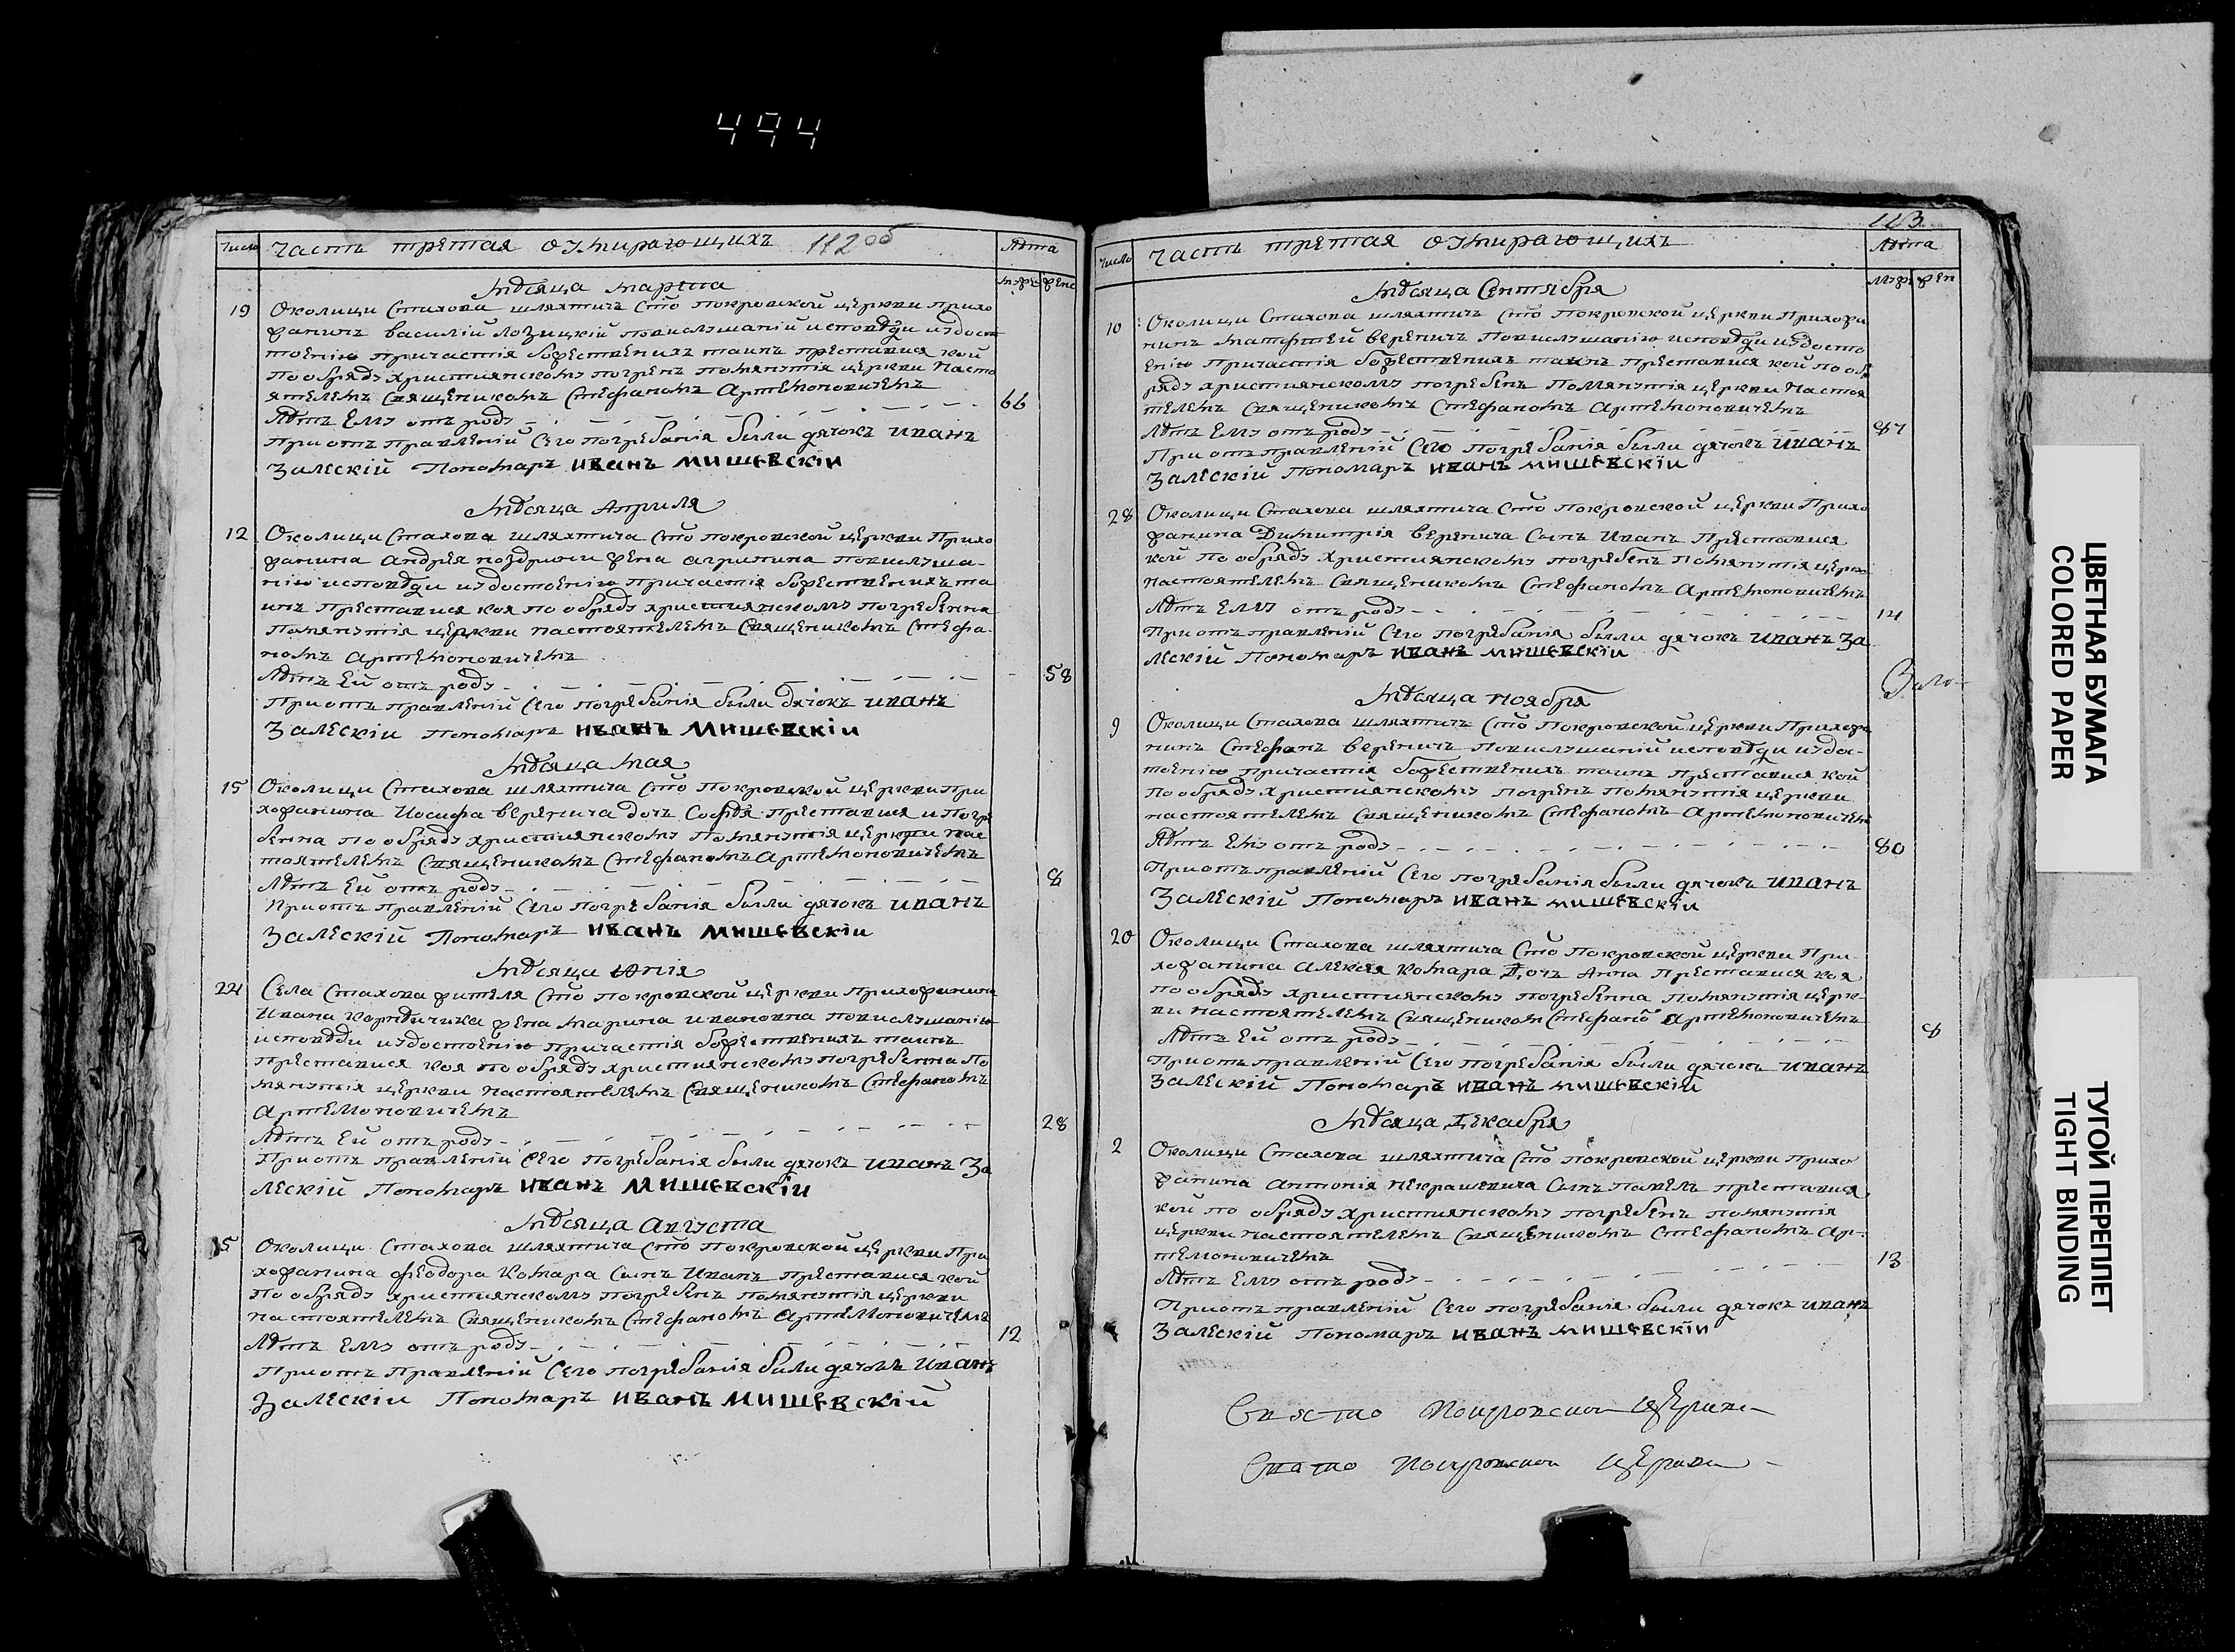 494
Число Часть третая оумирающихъ 112 об Лѣта
муж жен
Мѣсяца Марта
19 Околици Стахова шляхтичъ Сто покровской церкви прихо
жанинъ василій Лозицкій повислушаній исповѣди иудост
тоенію причастія божественихъ таинъ преставися кой
пообряду християнскому погренъ помянутія церкви Насто
ятелемъ священикомъ Стефаномъ Артемоновичемъ
Лѣтъ Ему отъ роду 66
Приотъ правленій Сего погребанія были дячокъ иванъ
Залескій Пономаръ иванъ мишевскіи
Мѣсяца Априля
12 Околици Стахова шляхтича Сто покровской церкви Прихо
жанина андрея жена агрипина повислуша-
нію исповѣди иудостоенію причастія божественихъ та
инъ преставися коя по обряду християнскому погребенна
Помянутія церкви настоятелемъ Священикомъ Стефа-
номъ Артемоновичемъ
Лѣтъ Ей отъ роду 58
Приотъ правленій Сего погребанія были дячокъ иванъ
Залескіи пономаръ иванъ мишевскіи
Мѣсяца мая
15 Околици Стахова шляхтича Сто Покровской церкви При
хожанина Иосифа веренича дочъ Софѣя преставися и погре
бенна по обряду християнскому Помянутія церкви нас
тоятелемъ Священикомъ Стефаномъ Артемоновичемъ
Лѣтъ Ей отъ роду 8
Приотъ правленій Сего погребанія были дячокъ иванъ
Залескій Пономаръ иванъ мишевскіи
Мѣсяца июнія
24 Села Стахова жителя Сто покровской церкви Прихожанина
Ивана жена марина ивановна повислушанію
исповѣди иудостоенію причастія божественихъ таинъ
преставися коя по обряду християнскому погребенна По
мянутія церкви настоятелемъ Священикомъ Стефаномъ
Артемоновичемъ
Лѣтъ Ей отъ роду 28
Приотъ правленіи Сего погребанія были дячокъ иванъ За
лескій Пономаръ иванъ мишевскіи
Мѣсяца Августа
15 Околици Стахова шляхтича Сто покровской церкви При
хожанина феодора Комара Сынъ Иванъ преставися кой
По обряду християнскому погребенъ помянутія церкви
настоятелемъ Священикомъ Стефаномъ Артемоновичемъ
Лѣтъ Ему отъ роду 12
Приотъ правленій Сего погребанія были дячокъ Иванъ
Залескіи Пономаръ иванъ мишевскій
113
Число Часть третая оумирающихъ Лѣта
муж жен
Мѣсяца Сентября
10 Околици Стахова шляхтичъ Сто покровской церкви Прихожа
нинъ матфтей вереничъ Повислушанію исповѣди иудосто
енію Причастія божественихъ таинъ преставися кой по об
ряду християнскому погребенъ Помянутія церкви Настоя
телемъ Священикомъ Стефаномъ Артемоновичемъ
Лѣтъ Ему отъ роду 87
Приотъправленій Сего погребанія были дячокъ иванъ
Залескій Пономаръ иванъ мишевскіи
28 Околици Стахова шляхтича Сто покровской церкви Прихо
жанина Димитрія веренича Сынъ Иванъ Преставися
кой по обряду християнскому погребенъ Помянутія церкви
настоятелемъ Священикомъ Стефаномъ Артемоновичемъ
Лѣтъ Ему отъ роду 14
Приотъправленій Сего погребанія были дячокъ иванъ За
лескій Пономаръ иванъ мишевскіи
Мѣсяца Ноября
9 Околици Стахова шляхтичъ Сто Покровской церкви Прихожа
нинъ Стефанъ вереничъ повислушаній исповѣди иудос-
тоенію причастія божественихъ таинъ преставися кой
По обряду християнскому погренъ помянутія церкви
настоятелемъ Священикомъ Стефаномъ Артемоновичемъ
Лѣтъ Ему отъ роду 80
Приотъправленій Сего погребанія были дячокъ иванъ
Залескій Пономаръ иванъ мишевскіи
20 Околици Стахова шляхтича Сто Покровской церкви При-
хожанина алексея Комара Дочъ Анна Преставися коя
по обряду християнскому погребенна помянутія церк-
ви настоятелемъ Священиком Стефано Артемоновичемъ
Лѣтъ Ей отъ роду 8
Приотъ правленій Сего погребанія были дячокъ иванъ
Залескій Пономаръ иванъ мишевскіи
Мѣсяца Декабря
2 Околици Стахова шляхтича Сто покровской церкви Прихо
жанина Антонія некрашевича Сынъ Павелъ преставися
кой по обряду християнскому погребенъ помянутія
церкви настоятелемъ Священикомъ Стефаномъ Ар-
темоновичемъ
Лѣтъ Ему отъ роду 13
Приотъ правленій Сего погребанія были дячокъ иванъ
Залескій Пономаръ иванъ мишевскіи
Свято Покровской церкви
Свято Покровской церкви
ЦВЕТНАЯ БУМАГА
COLORED PAPER
ТУГОЙ ПЕРЕПЛЕТ
TIGHT BINDING